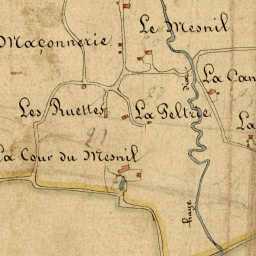 Le Mesnil
Maçonnerie
La Can
Les Ruettes
La Peltrie
La
La Cour du Mesnil
haye